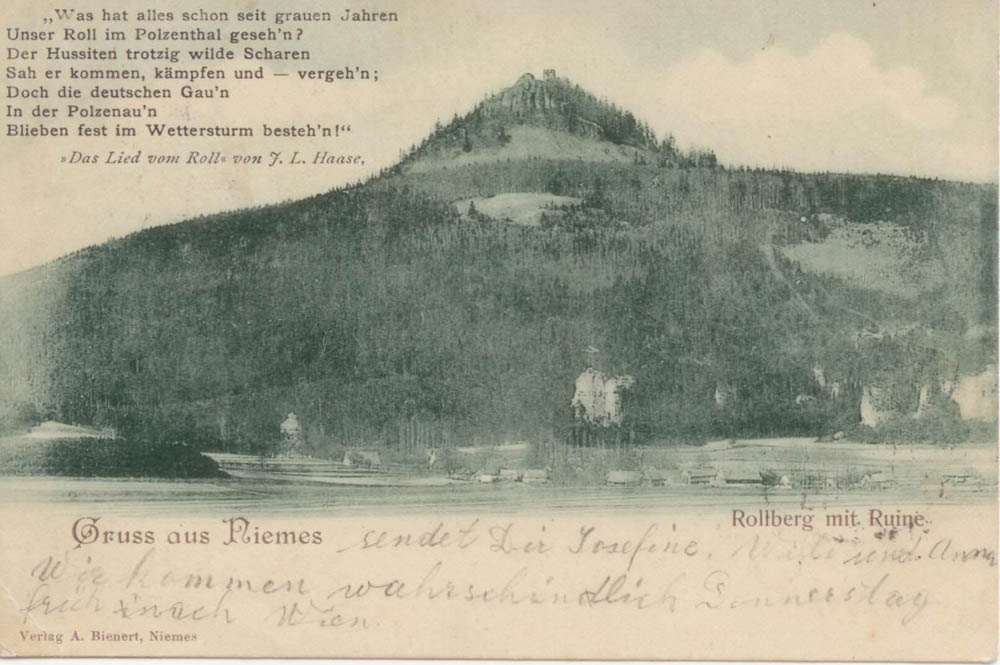 „Was hat alles schon seit grauen Jahren
Unser Roll im Polzenthal geseh'n?
Der Hussiten trotzig wilde Scharen
Sah er kommen, kämpfen und — vergeh'n;
Doch die deutschen Gau'n
In der Polzenau'n
Blieben fest im Wettersturm besteh'n!“
»Das Lied vom Roll« von J. L. Haase.
Rollberg mit Ruine.
Gruss aus Niemes
sendet Dir Josefine, und Anna
Wir kommen wahrscheindlich Donnerstag
früh nach Wien.
Verlag A. Bienert, Niemes